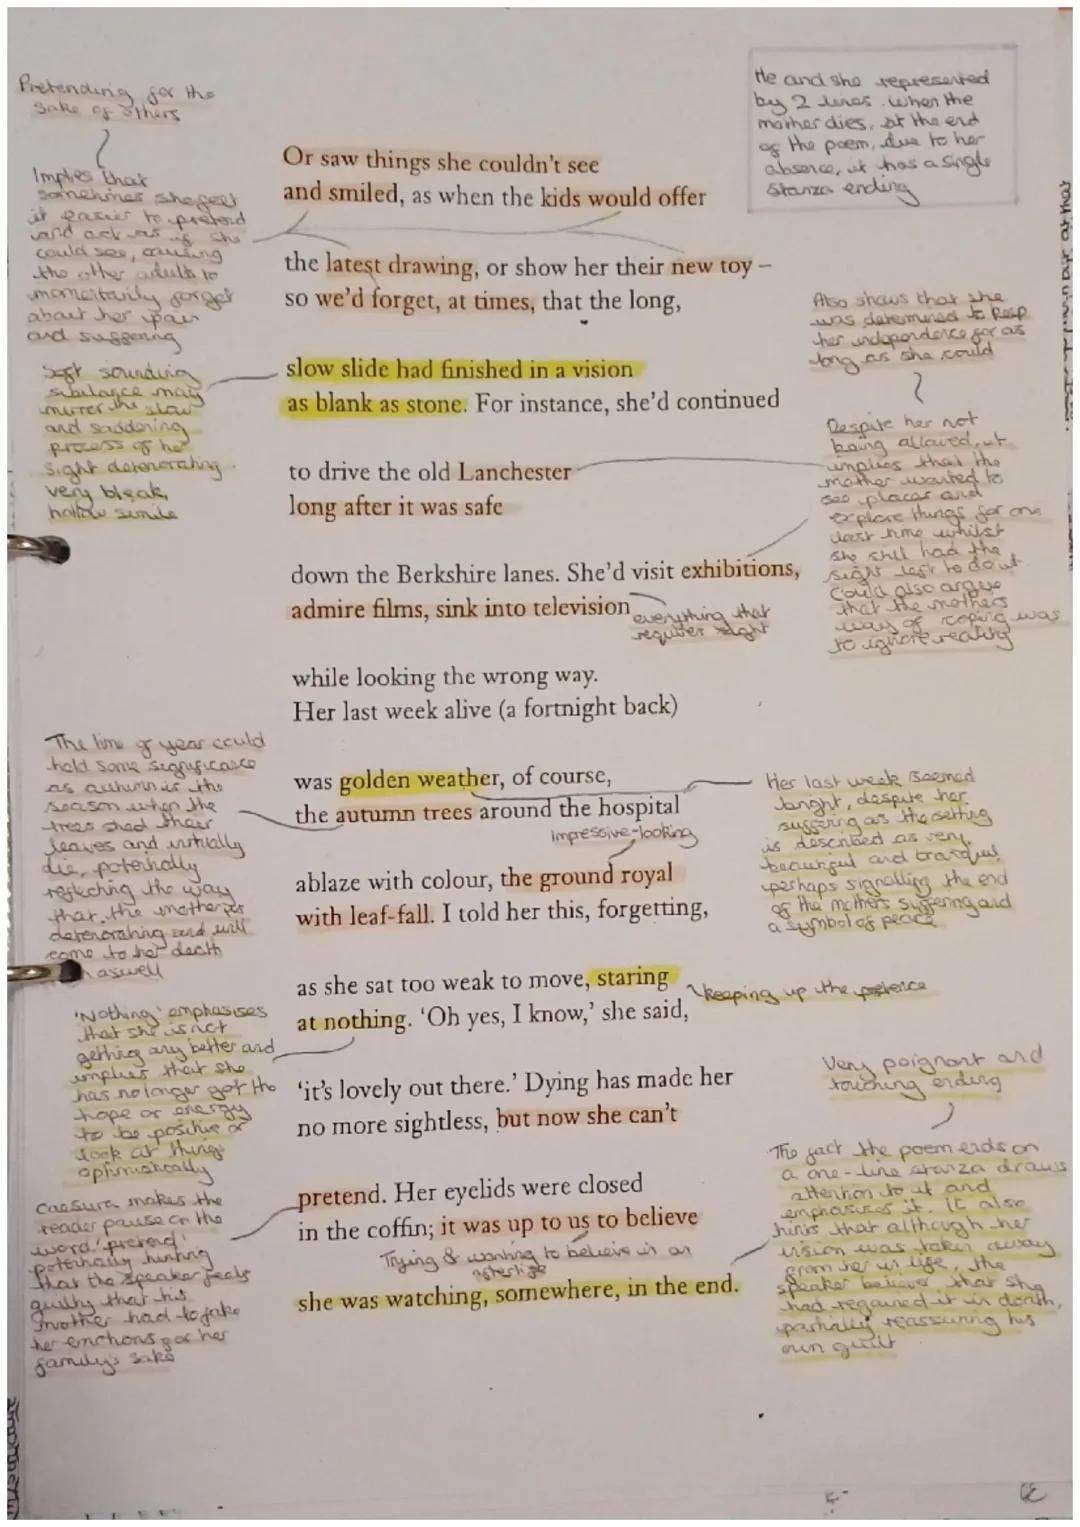 Pretending for the
sake of others
Implies that
sometimes she felt
it easier to pretend
and act as if she
could see, causing
the other adults to
momentarily forget
about her pain
and suffering
Soft sounding
sibilance may
mirror the slow
and saddening
process of her
sight deteriorating.
very bleak,
hollow simile
He and she represented
by 2 lines. When the
mother dies, at the end
of the poem, due to her
absence, it has a single
stanza ending
Or saw things she couldn't see
and smiled, as when the kids would offer
the latest drawing, or show her their new toy –
so we'd forget, at times, that the long,
slow slide had finished in a vision
as blank as stone. For instance, she'd continued
to drive the old Lanchester
long after it was safe
down the Berkshire lanes. She'd visit exhibitions,
admire films, sink into television
everything that
requires sight
while looking the wrong way.
Her last week alive (a fortnight back)
was golden weather, of course,
the autumn trees around the hospital
impressive-looking
ablaze with colour, the ground royal
with leaf-fall. I told her this, forgetting,
as she sat too weak to move, staring
at nothing. 'Oh yes, I know,' she said,
keeping up the pretence
'it's lovely out there.' Dying has made her
no more sightless, but now she can't
pretend. Her eyelids were closed
in the coffin; it was up to us to believe
Trying & wanting to believe in an
afterlife
she was watching, somewhere, in the end.
Also shows that she
was determined to keep
her independence for as
long as she could
Despite her not
being allowed, it
implies that the
mother wanted to
see places and
explore things for one
last time whilst
she still had the
sight left to do it.
Could also argue
that the mothers
way of coping was
to ignore reality
The time of year could
hold some significance
as autumn is the
season when the
trees shed their
leaves and initially
die, potentially
reflecting the way
that the mother is
deteriorating and will
come to her death
aswell
Her last week seemed
bright, despite her
suffering as the setting
is described as very
beautiful and tranquil
perhaps signalling the end
of the mothers suffering and
a symbol of peace
'Nothing' emphasises
that she is not
getting any better and
implies that she
has no longer got the
hope or energy
to be positive or
look at things
optimistically
Caesura makes the
reader pause on the
word 'pretend'
potentially hinting
that the speaker feels
guilty that his
mother had to fake
her emotions for her
family's sake
Very poignant and
touching ending
The fact the poem ends on
a one-line stanza draws
attention to it and
emphasises it. It also
hints that although her
vision was taken away
from her in life, the
speaker believes that she
had regained it in death,
partially reassuring his
own guilt